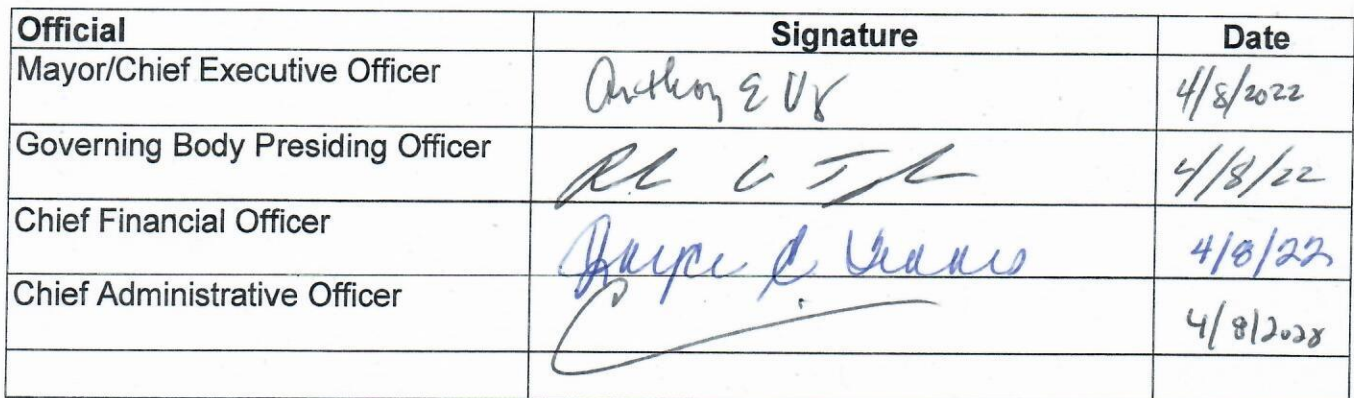 Official Signature Date
Mayor/Chief Executive Officer Anthony E 4/8/2022
Governing Body Presiding Officer 4/8/22
Chief Financial Officer 4/8/22
Chief Administrative Officer 4/8/2028